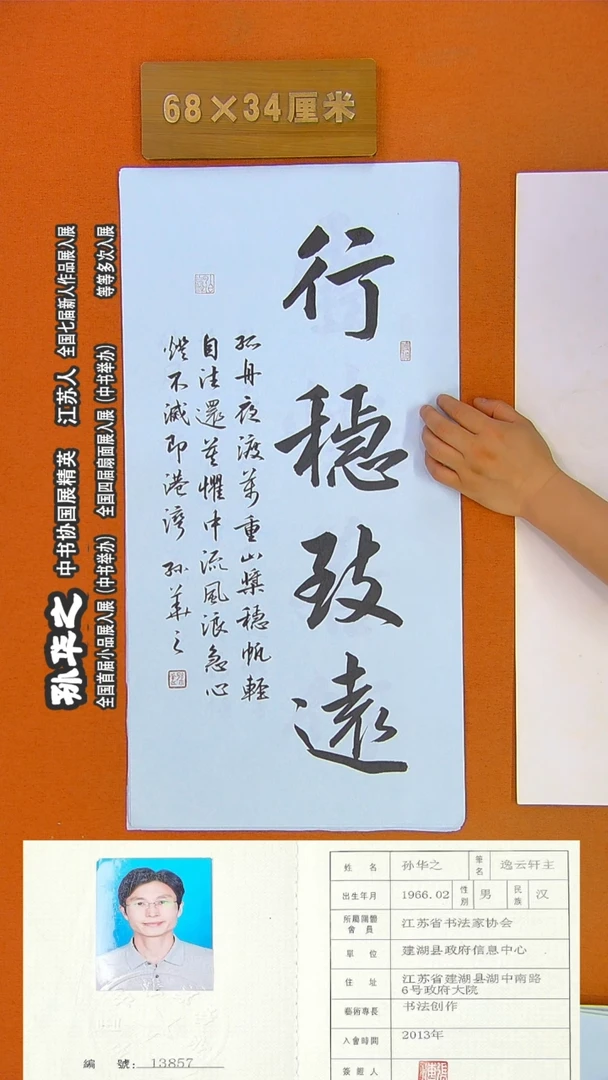 68×34厘米
行穩致遠
孤舟夜渡萬重山槳穩帆輕
自往還莫懼中流風浪急心
燈不滅即港灣 孙華之
孙华之 中书协国展精英 江苏人 全国七届新人作品展入展
全国首届小品展入展（中书举办） 全国四届扇面展入展（中书举办） 等等多次入展
姓名 孙华之 筆名 逸云轩主
出生年月 1966.02 性别 男 民族 汉
所屬團體會員 江苏省书法家协会
單位 建湖县政府信息中心
住址 江苏省建湖县湖中南路6号政府大院
藝術專長 书法创作
入會時間 2013年
簽證人
編號：13857